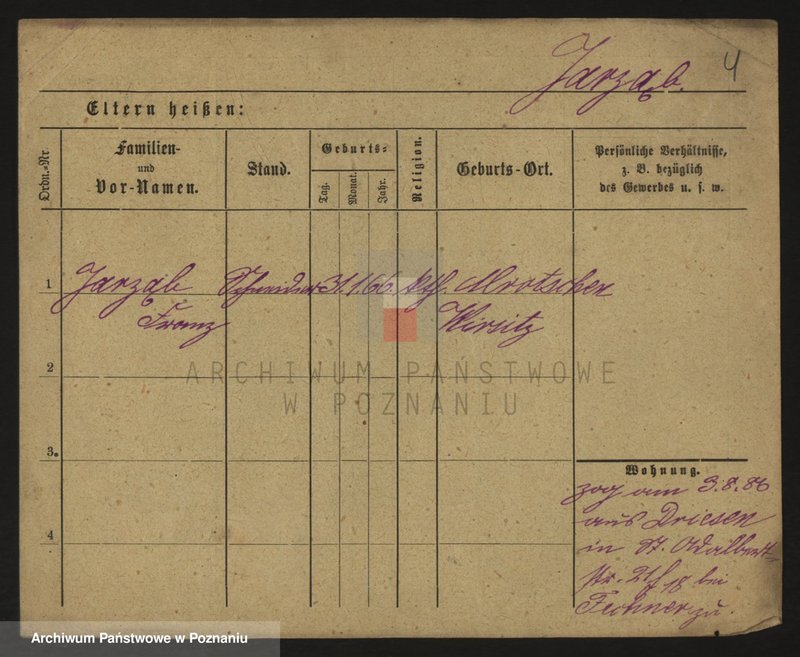 Jarząb.
4
Eltern heißen:
Ordn.-Nr
Familien-
und
Vor-Namen.
Stand.
Geburts-
Tag.
Monat.
Jahr.
Religion.
Geburts-Ort.
Persönliche Verhältnisse,
z. B. bezüglich
des Gewerbes u. s. w.
1 Jarząb Schneider 31. 1. 66. kth. Mrotschen
Franz Wirsitz
ARCHIWUM PAŃSTWOWE
W POZNANIU
2
3.
4
Wohnung.
zog am 3.8.86
aus Driesen
in St. Adalbert-
str. bei
zu.
Archiwum Państwowe w Poznaniu